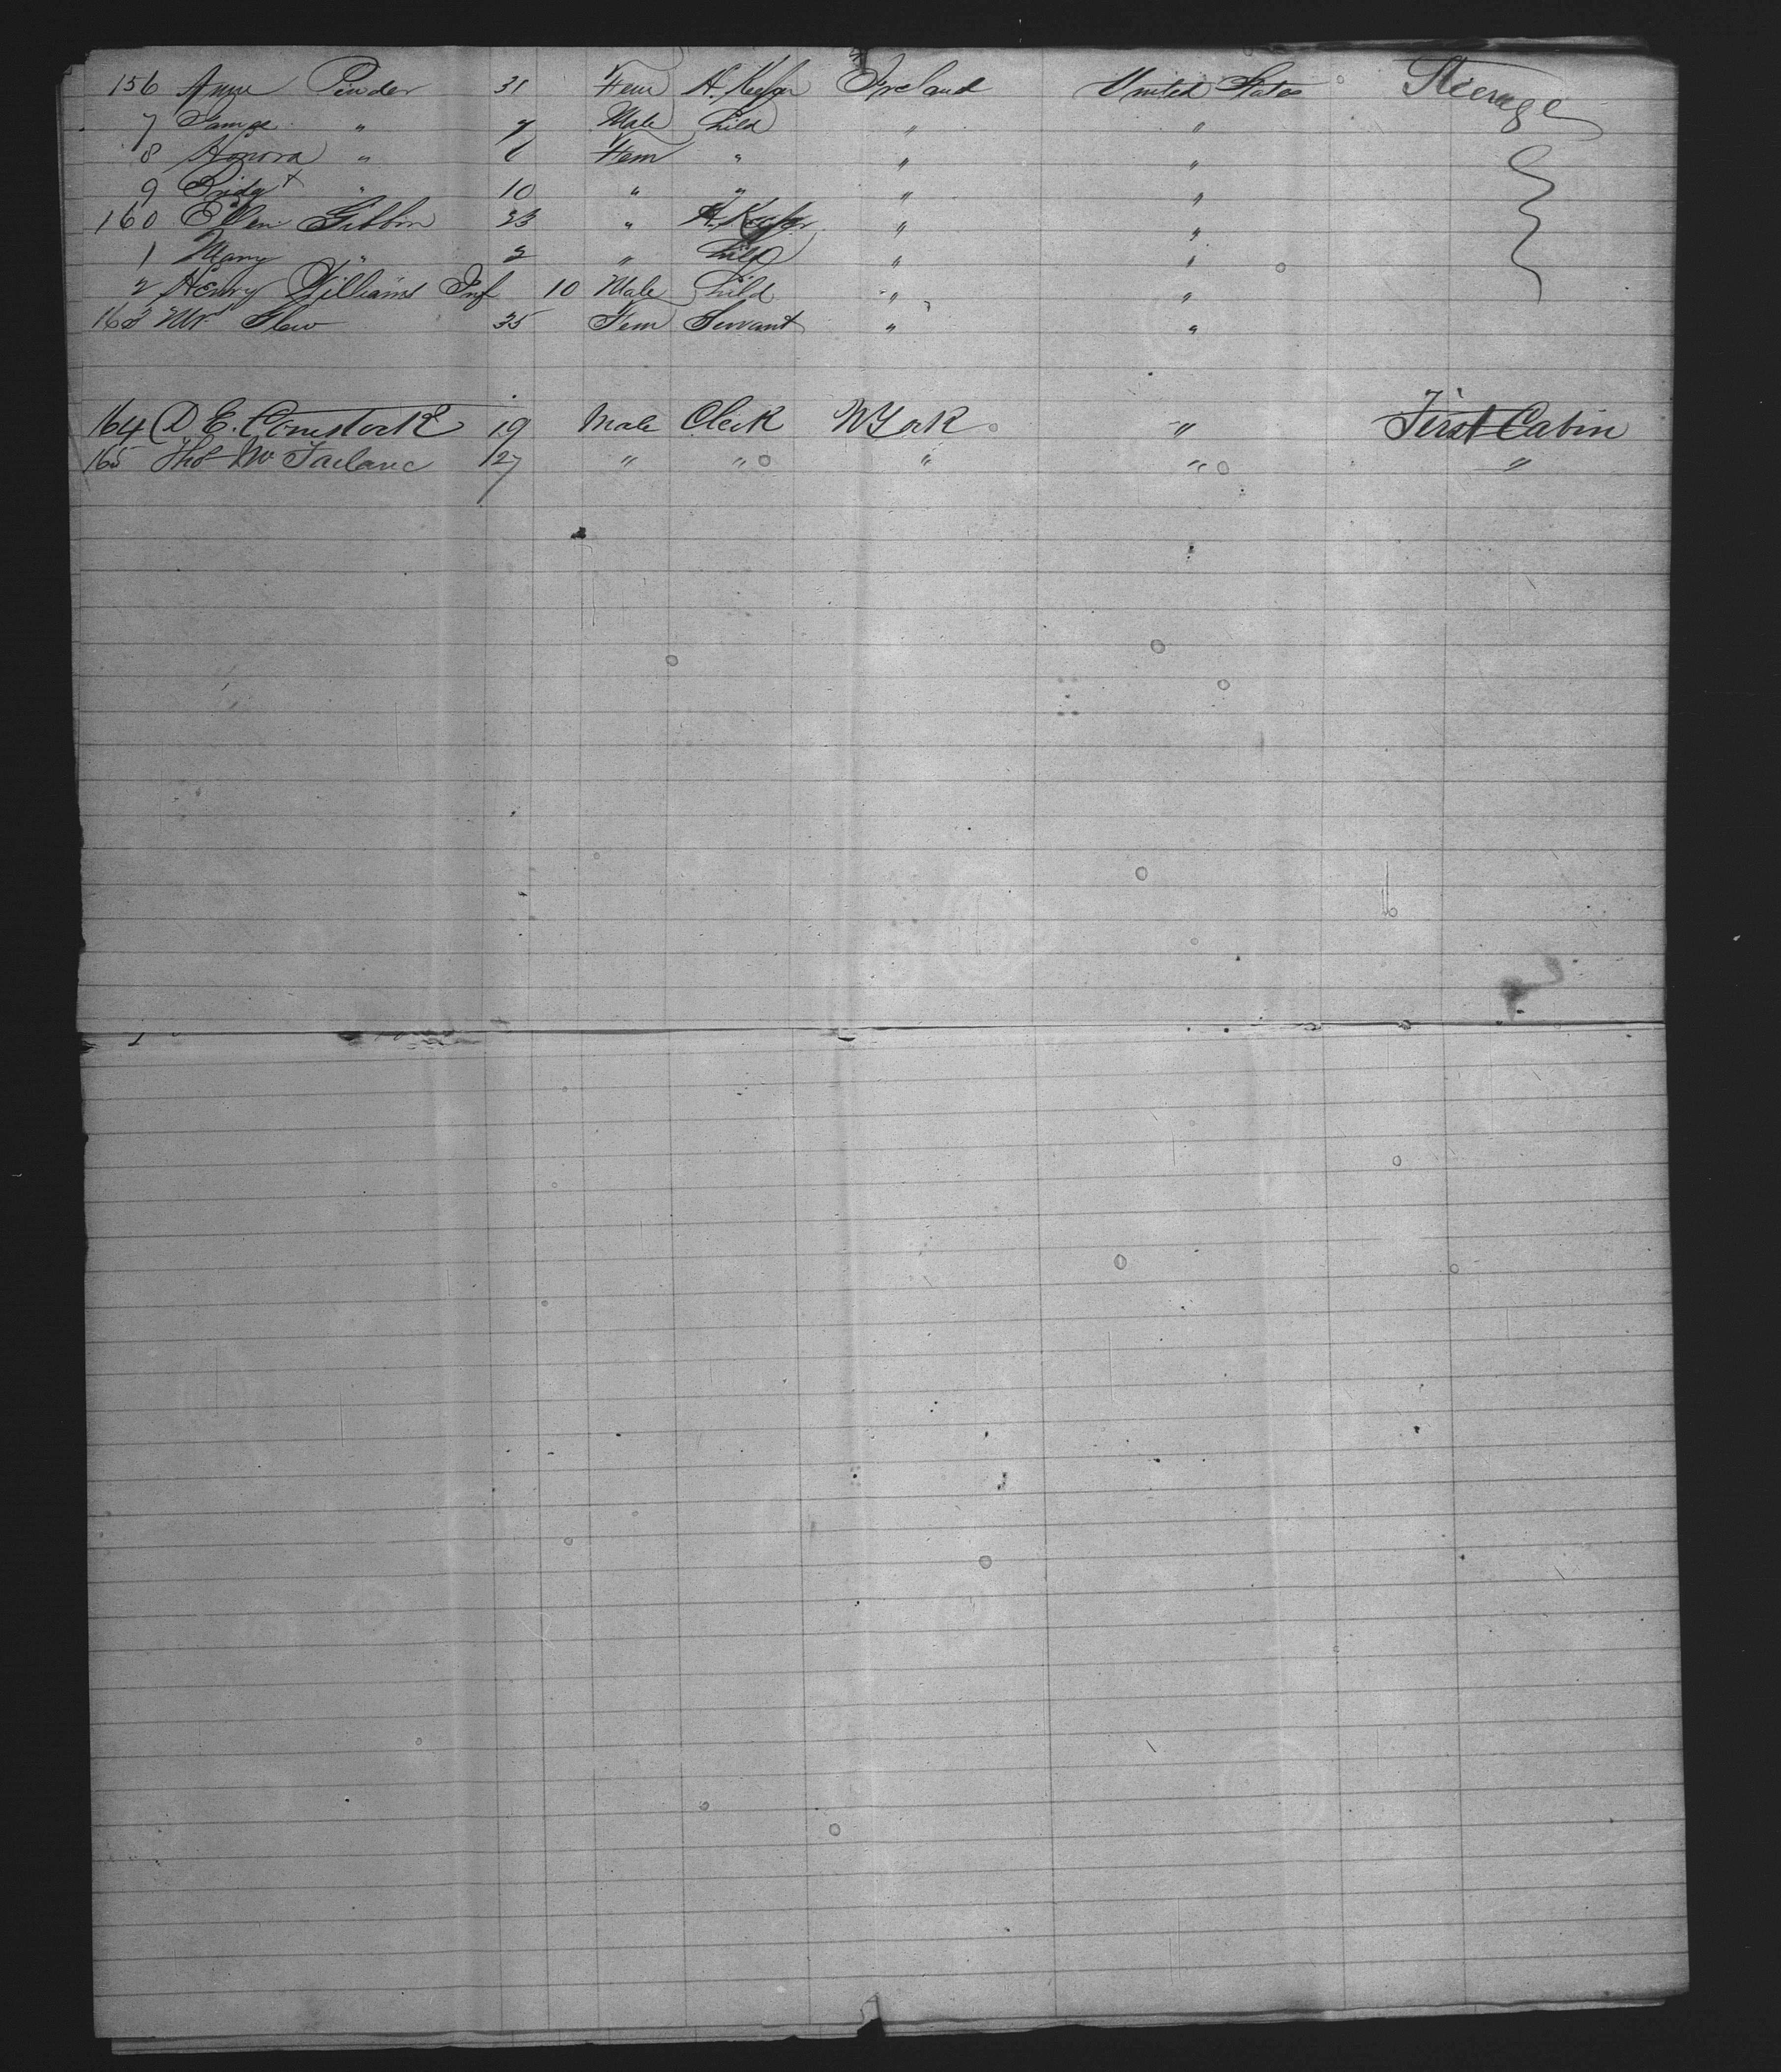 156 Anne Pinder 31 Fem H. Keeper Ireland United States Steerage
7 " 7 Male Child " "
8 Honora " 6 Fem " " "
9 Bridgt " 10 " " " "
160 Ellen Gibbon 23 " H. Keeper " "
1 Mary " 2 " Child " "
2 Henry Williams Inf 10 Male Child " "
163 35 Fem Servant " "
164 D E. Comstock 19 Male Clerk N York " First Cabin
165 Thos Mc Farlane 27 " " " " "